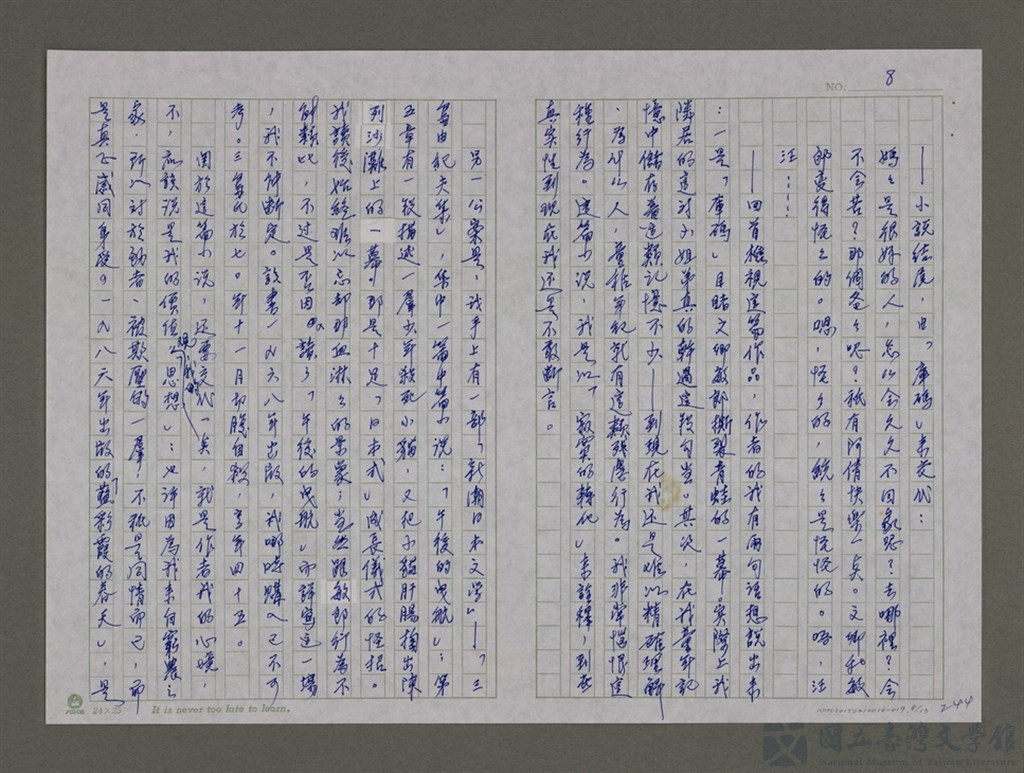 NO. 8
——小說結尾，由「庫碼」來交代：
媽々是很好的人，怎么会久久不回家呢？去哪裡？会
不会苦？那個爸々呢？祇有阿倩快樂一点。文卿和敏
郎變得恍々的。嗯，恍々的，統々是恍恍的。唔，汪
汪……
——回首檢視這篇作品，作者的我有兩句話想說出來
：一是「庫碼」目睹文卿敏郎撕裂青蛙的一幕。实際上我
隣居的這对小姐弟真的幹過這種勾当。其次，在我童年記
憶中儲存着這類記憶不少——到現在我还是难以精確理解
，为什么人，童稚年紀就有這類殘虐行为。我非常惶恨這
種行为。這篇小說，我是以「寂寞的轉化」來詮釋，到底
真实性到現在我还是不敢斷言。
另一公案是，我手上有一部「新潮日本文学」——「三
島由紀夫集」，集中一篇中篇小說：「午後的曳航」；第
五章有一段描述一羣少年殺死小貓，又把小貓肝腸掏出陳
列沙灘上的一幕。那是十足「日本式」成長儀式的怪招。
我讀後始終难以忘却那血淋々的景象；当然跟敏郎行为不
能類比，不过是否因为讀了「午後的曳航」而詳寫這一場
，我不能斷定。該書一九六八年出版，我哪時購入已不可
考。三島氏於七〇年十一月切腹自殺，享年四十五。
関於這篇小說，还要交代一点，就是作者我的心境，
不，应該說是我的價值観、我的思想：也许因为我來自窮農之
家，所以对於弱者、被欺壓的一羣，不祇是同情而已，而
是真正感同身受。一九八六年出版的「藍彩霞的春天」，是
24×25
It is never too late to learn.
244
國立臺灣文學館
National Museum of Taiwan Literature